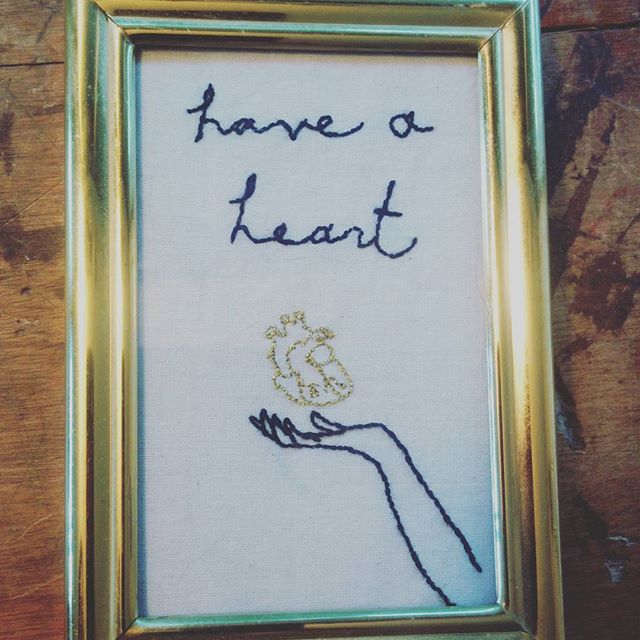 have a
heart